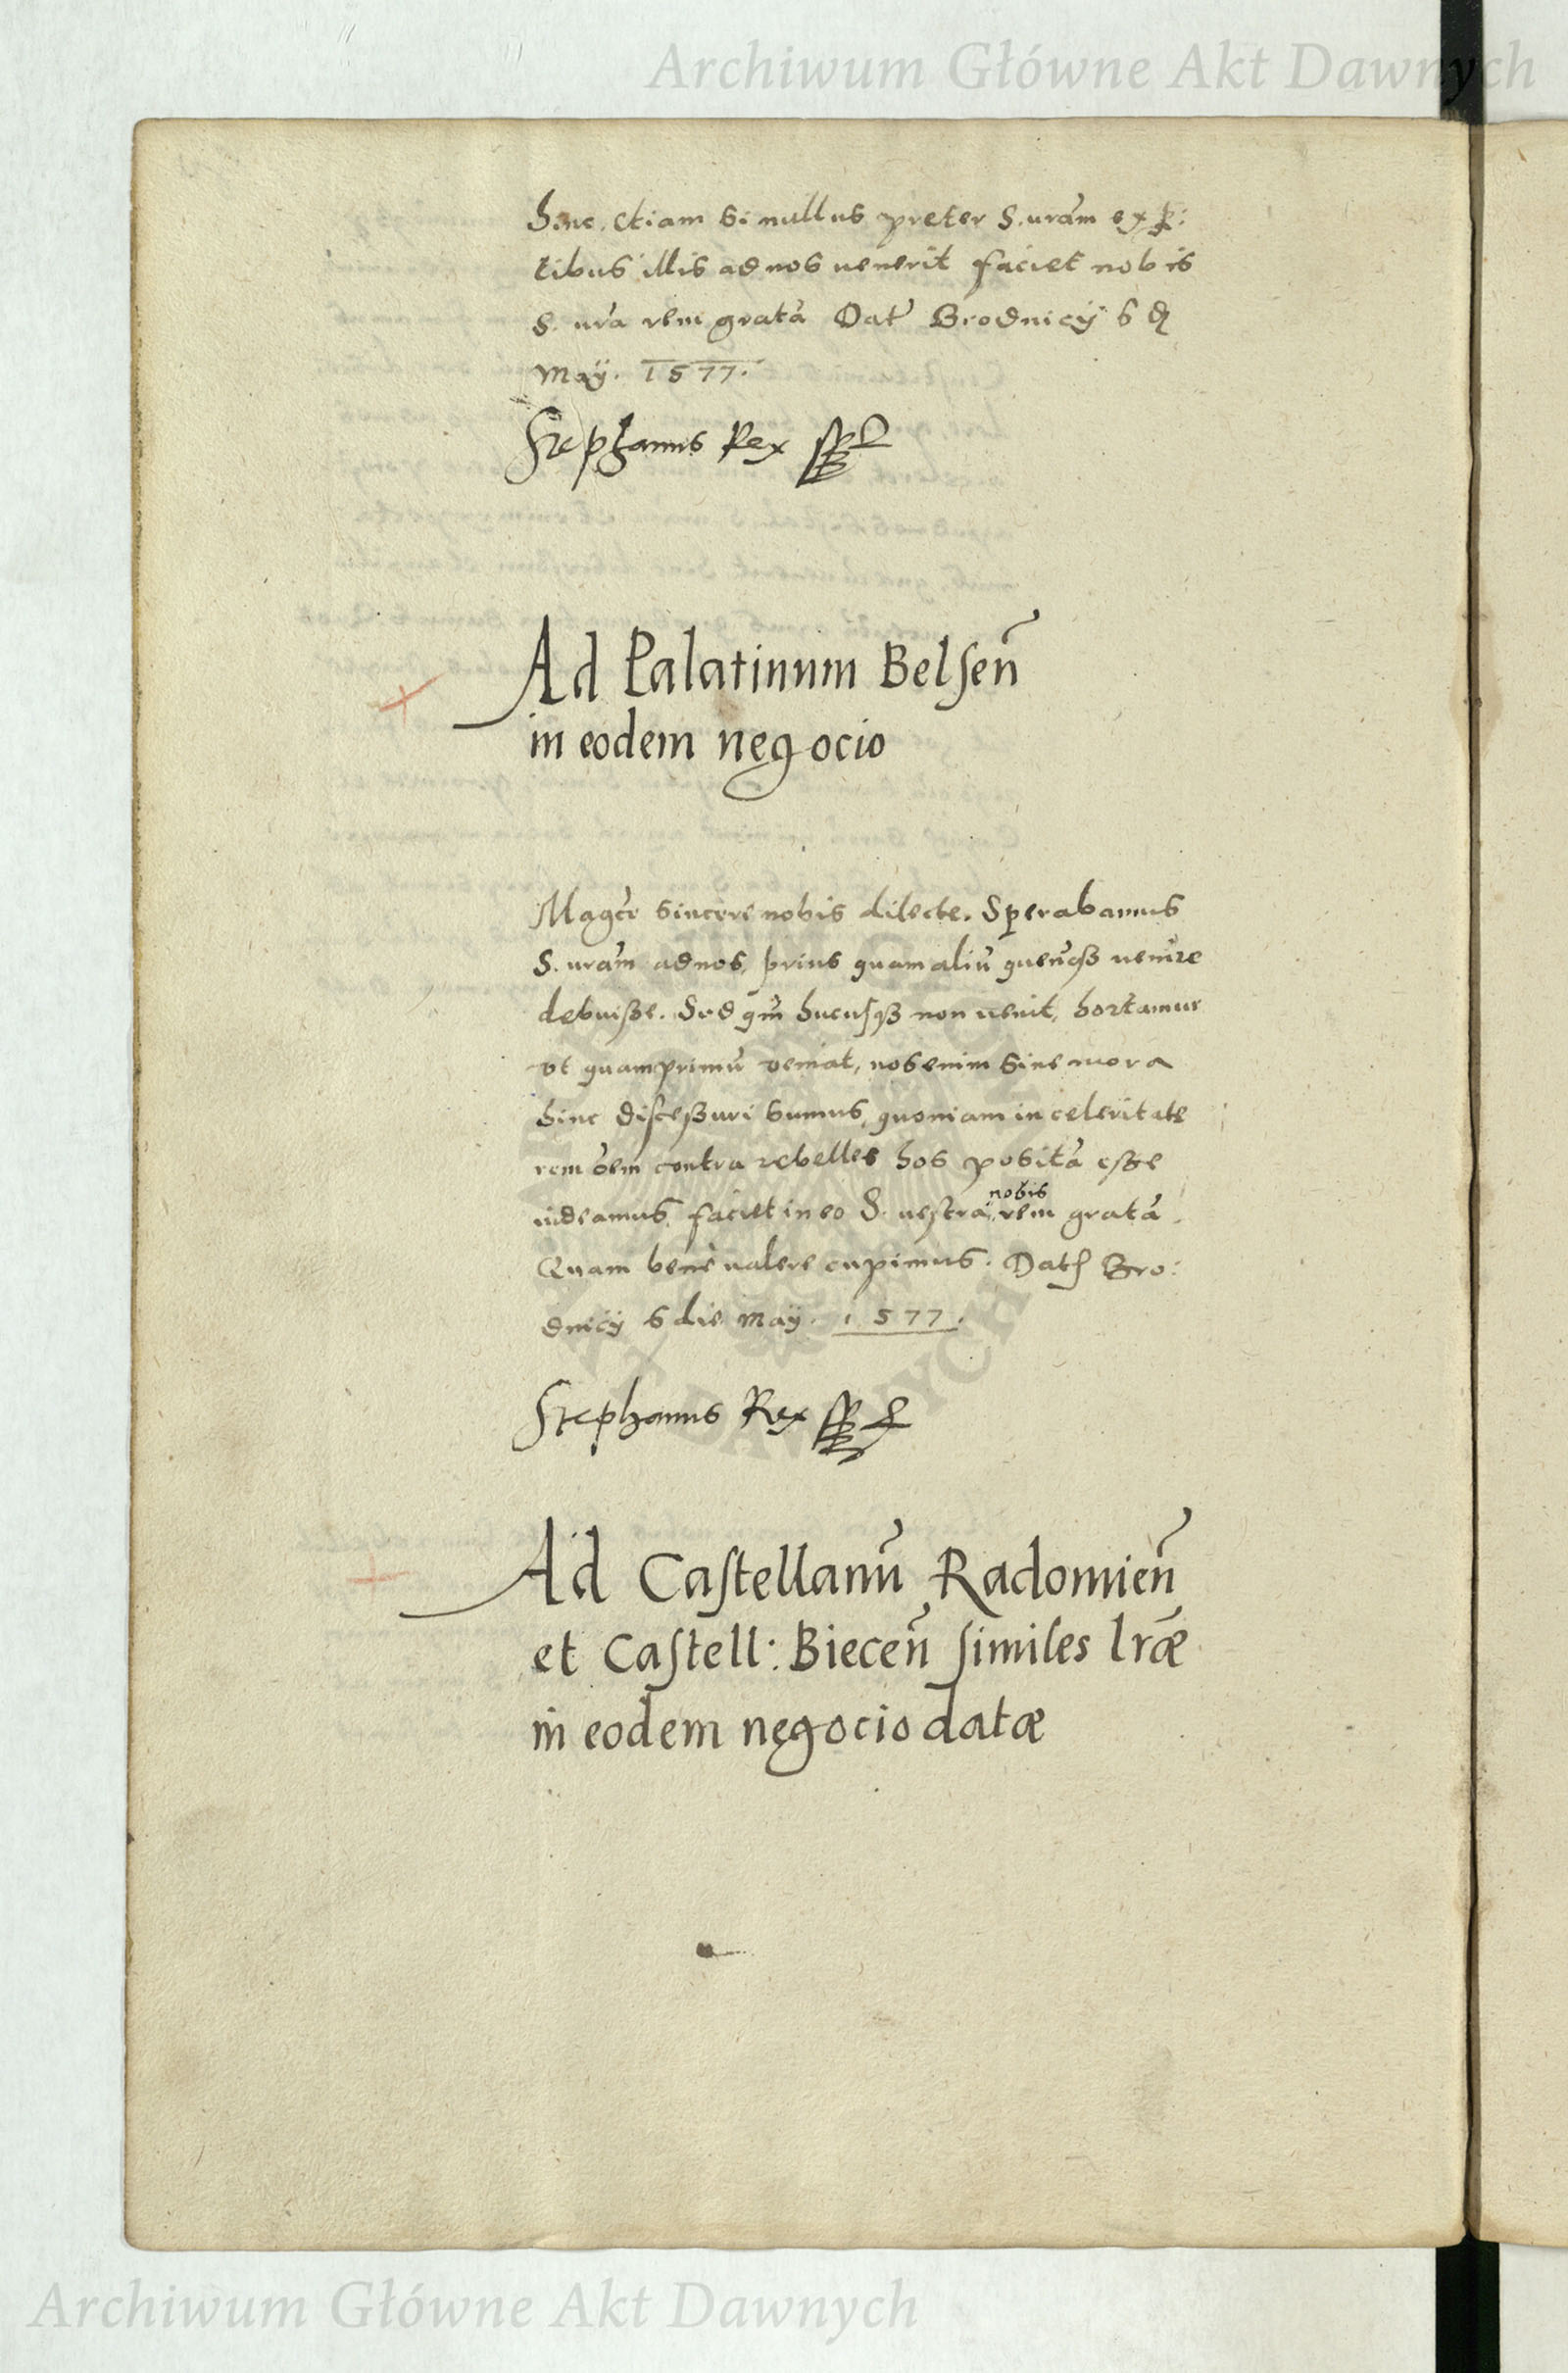 Archiwum Główne Akt Dawnych
hinc. etiam si nullus preter S. uram ex p:
tibus illis ad nos uenerit faciet nobis
S. ura rem gratã Dat Brodnicÿ 6 d
Maÿ. 1577.
Stephanus Rex
Ad Palatinum Belsen̄
in eodem negocio
Magce sincere nobis dilecte. Sperabamus
S. uram ad nos, prius quam aliũ quenq3 uenire
debuisse. Sed qm̃ hucusq3 non uenit, hortamur
vt quamprimũ veniat, nos enim sine mora
hinc discessuri sumus, quoniam in celeritate
rem õem contra rebelles hos positã esse
uideamus, faciet in eo S. uestra nobis rem gratã.
Quam bene ualere cupimus. Dat Bro:
dnicÿ 6 die Maÿ. 1577.
Stephanus Rex
Ad Castellanũ Radomien̄
et Castell: Biecen̄ similes lr̃æ
in eodem negocio datæ
Archiwum Główne Akt Dawnych